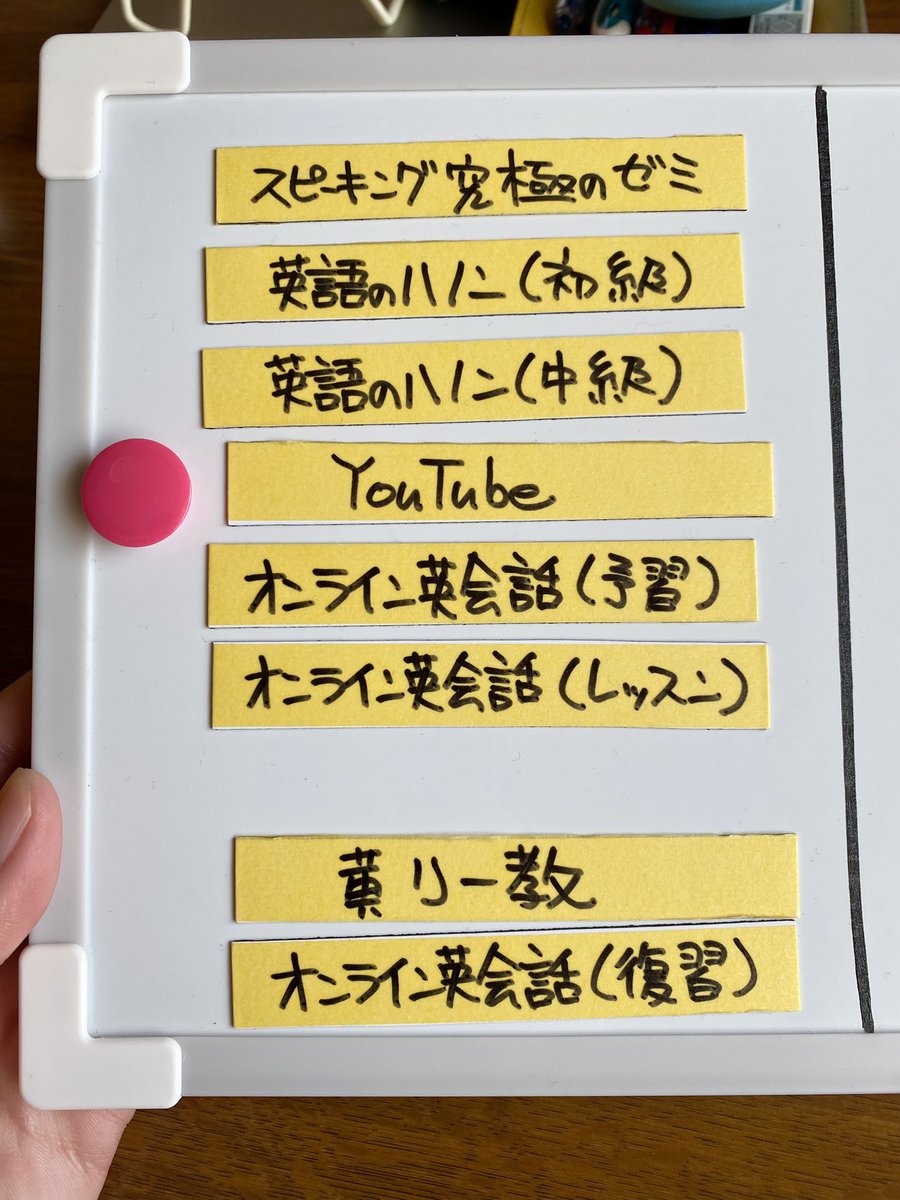 スピーキング究極のゼミ
英語のハノン(初級)
英語のハノン(中級)
YouTube
オンライン英会話(予習)
オンライン英会話(レッスン)
黄リー教
オンライン英会話(復習)